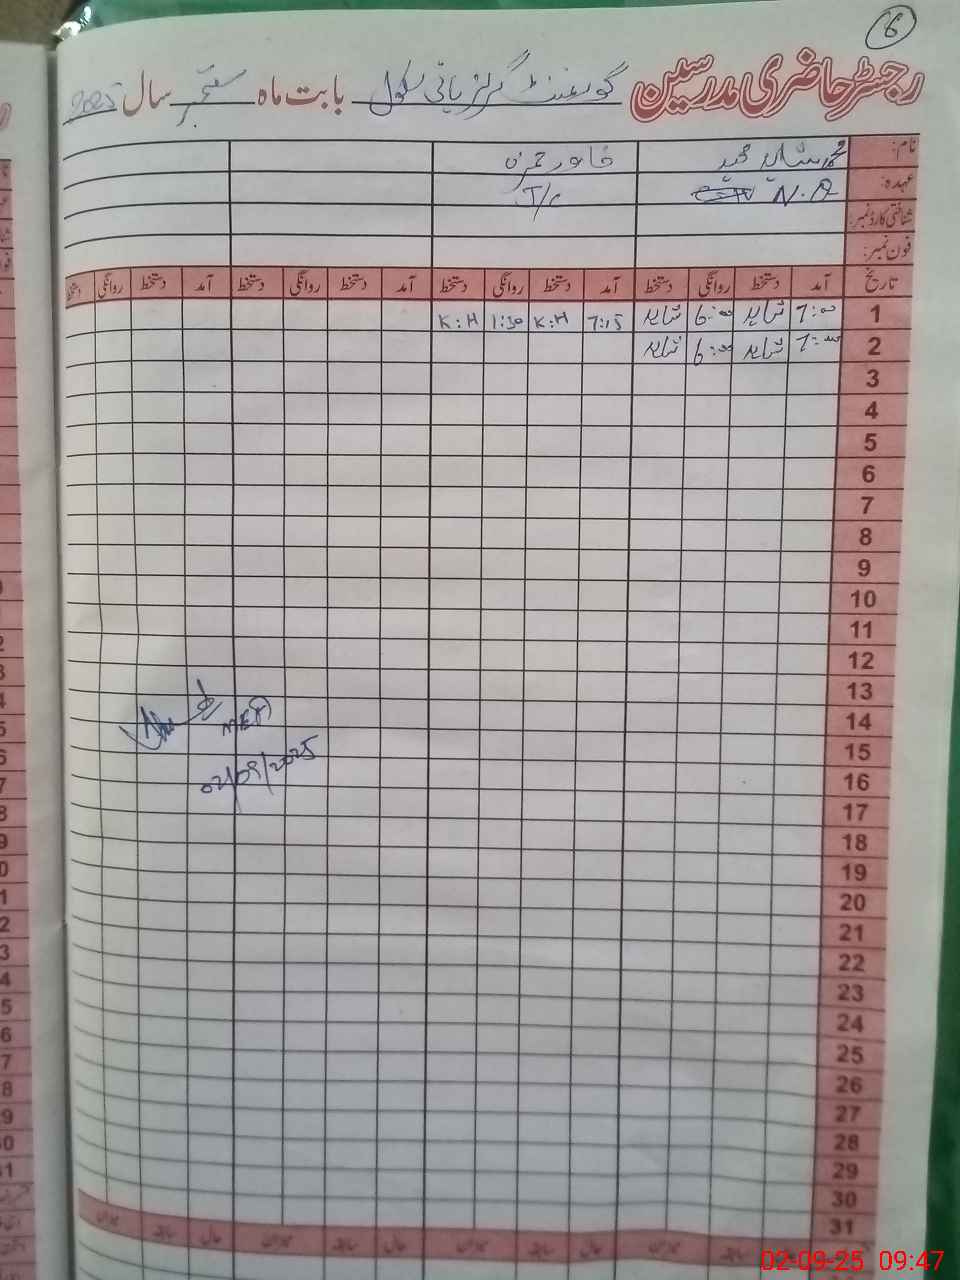 6
رجسٹر حاضری مدرسین گورنمنٹ گرلز ہائی سکول بابت ماہ ستمبر سال 2025
نام: محمد شاہد حمید خاور حمزہ
عہدہ: N.Q J/C
شناختی کارڈ نمبر:
فون نمبر:
تاریخ آمد دستخط روانگی دستخط آمد دستخط روانگی دستخط آمد دستخط روانگی دستخط آمد دستخط روانگی دستخط
1 7:00 شاہد 6:00 شاہد 7:15 K:H 1:30 K:H
2 7:00 شاہد 6:00 شاہد
3
4
5
6
7
8
9
10
11
12
13
14
15
16
17
18
19
20
21
22
23
24
25
26
27
28
29
30
31
MEA
02/09/2025
سابقہ میزان حال سابقہ میزان حال سابقہ میزان حال سابقہ میزان
02-09-25 09:47